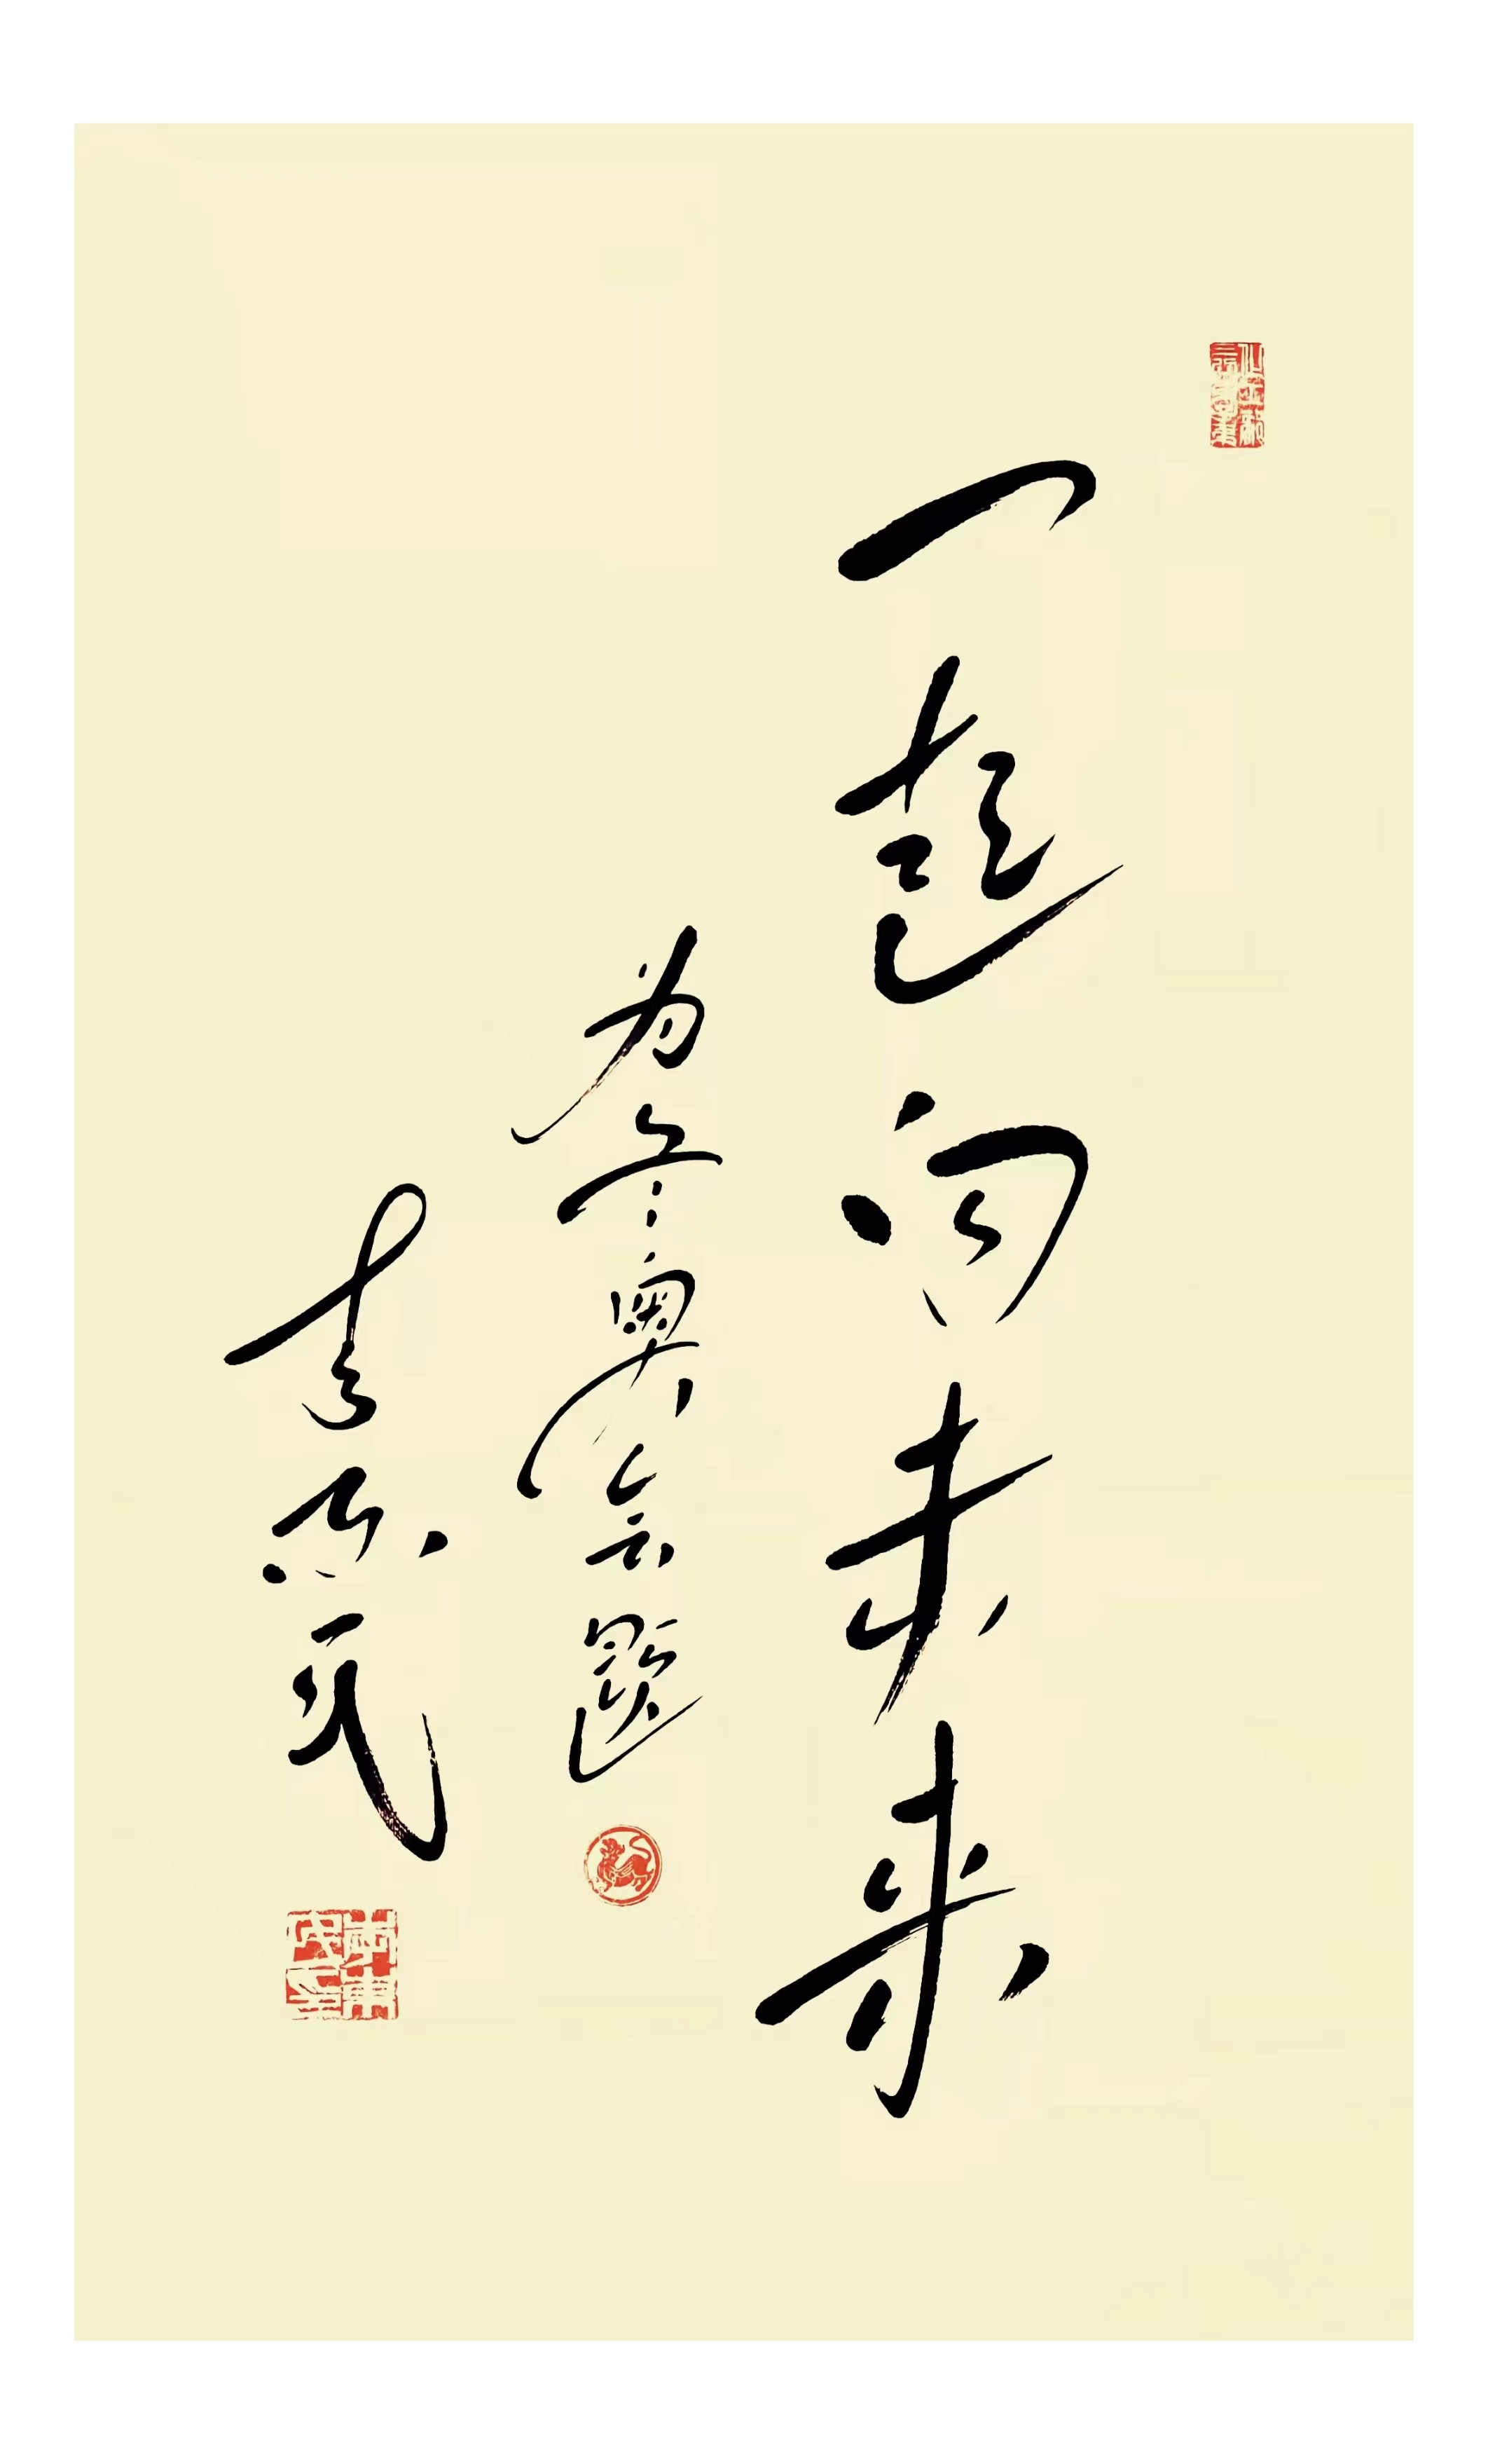 一起向未来
为冬奥会题
李 民